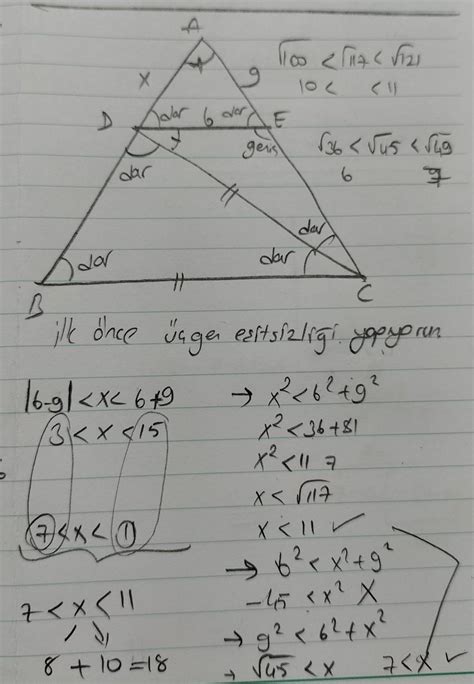 A
x
9
√100 < √117 < √121
10 < < 11
dar 6 dar
D E
geniş
√36 < √45 < √49
6 7
dar
dar
dar dar
B C
ilk önce üçgen eşitsizliği yapıyorum
|6-9| < x < 6+9
3 < x < 15
7 < x < 11
7 < x < 11
8 + 10 = 18
→ x² < 6² + 9²
x² < 36 + 81
x² < 117
x < √117
x < 11 ✓
→ 6² < x² + 9²
-45 < x² X
→ 9² < 6² + x²
→ √45 < x 7 < x ✓